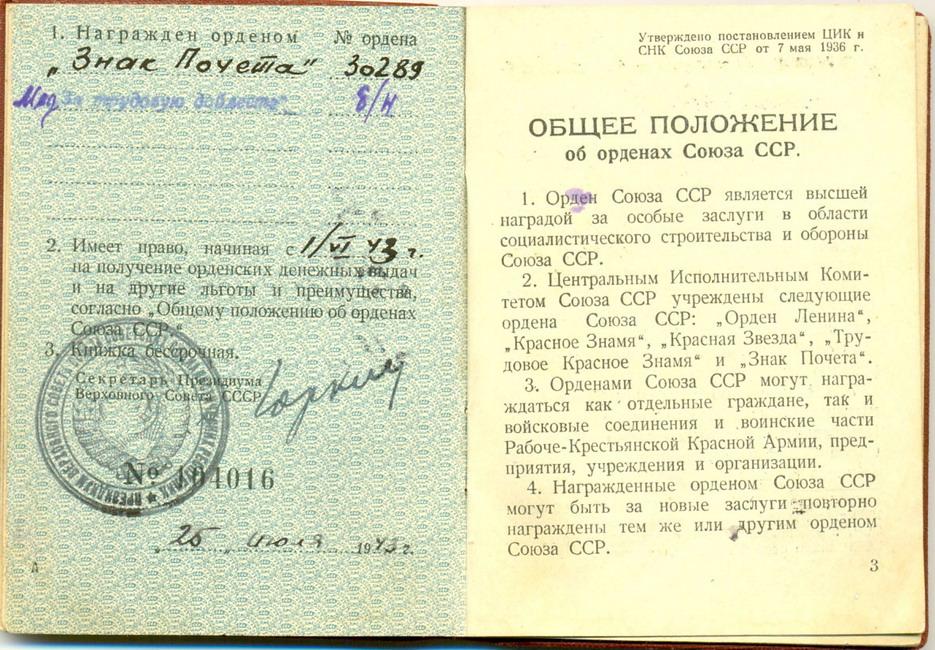 1. Награжден орденом № ордена
„Знак Почета" 30289
Мед „За трудовую доблесть" б/н
2. Имеет право, начиная с 1/VI 43 г.
на получение орденских денежных выдач
и на другие льготы и преимущества,
согласно „Общему положению об орденах
Союза ССР."
3. Книжка бессрочная.
Секретарь Президиума
Верховного Совета СССР
№ 104016
„25" июля 1943 г.
А
Утверждено постановлением ЦИК и
СНК Союза ССР от 7 мая 1936 г.
ОБЩЕЕ ПОЛОЖЕНИЕ
об орденах Союза ССР.
1. Орден Союза ССР является высшей
наградой за особые заслуги в области
социалистического строительства и обороны
Союза ССР.
2. Центральным Исполнительным Коми-
тетом Союза ССР учреждены следующие
ордена Союза ССР: „Орден Ленина",
„Красное Знамя", „Красная Звезда", „Тру-
довое Красное Знамя" и „Знак Почета".
3. Орденами Союза ССР могут награ-
ждаться как отдельные граждане, так и
войсковые соединения и воинские части
Рабоче-Крестьянской Красной Армии, пред-
приятия, учреждения и организации.
4. Награжденные орденом Союза ССР
могут быть за новые заслуги повторно
награждены тем же или другим орденом
Союза ССР.
3